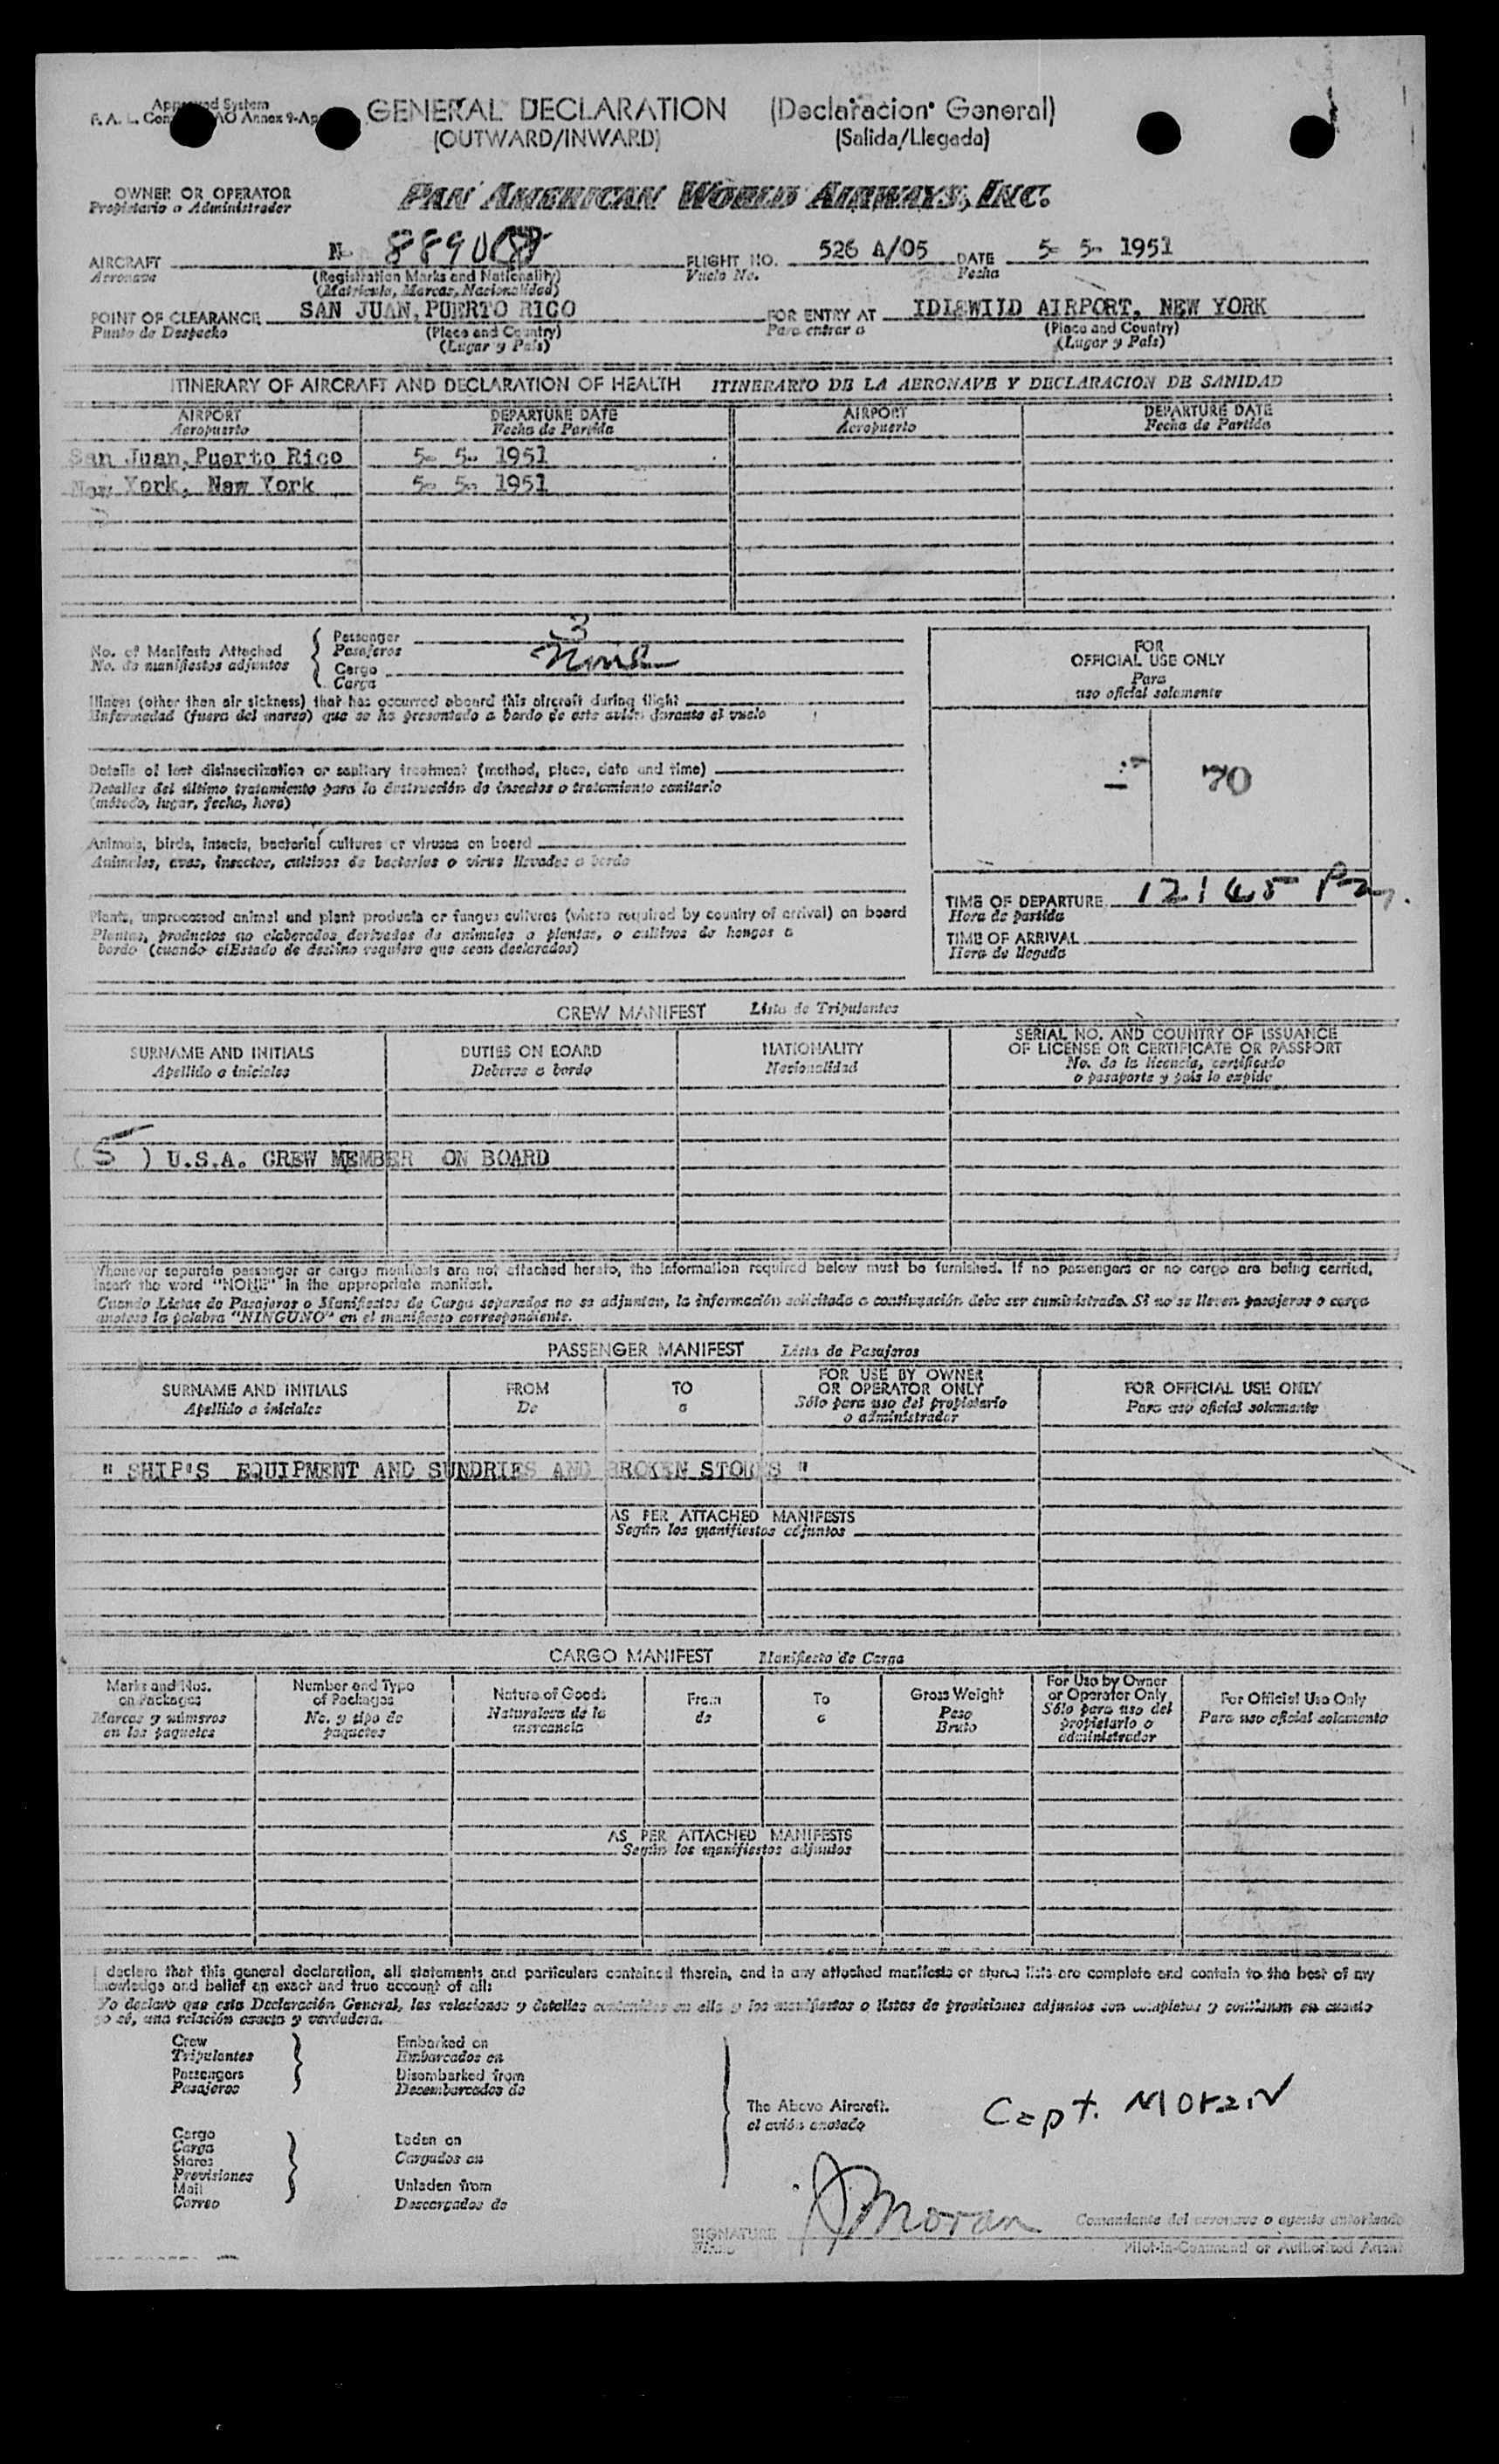 GENERAL DECLARATION (Declaracion General)
(OUTWARD/INWARD) (Salida/Llegada)
OWNER OR OPERATOR PAN AMERICAN WORLD AIRWAYS, INC.
Propietario o Administrador
AIRCRAFT N- 8890 FLIGHT NO. 526 A/05 DATE 5- 5- 1951
Aeronave (Registration Marks and Nationality) Vuelo No. Fecha
(Matricula, Marcas, Nacionalidad)
POINT OF CLEARANCE SAN JUAN, PUERTO RICO FOR ENTRY AT IDLEWILD AIRPORT, NEW YORK
Punto de Despacho (Place and Country) Para entrar a (Place and Country)
(Lugar y País) (Lugar y País)
ITINERARY OF AIRCRAFT AND DECLARATION OF HEALTH ITINERARIO DE LA AERONAVE Y DECLARACION DE SANIDAD
AIRPORT DEPARTURE DATE AIRPORT DEPARTURE DATE
Aeropuerto Fecha de Partida Aeropuerto Fecha de Partida
San Juan, Puerto Rico 5- 5- 1951
New York, New York 5- 5- 1951
No. of Manifests Attached Passenger 3
No. de manifiestos adjuntos Pasajeros
Cargo None
Carga
FOR
OFFICIAL USE ONLY
Para
uso oficial solamente
70
Illness (other than air sickness) that has occurred aboard this aircraft during flight
Enfermedad (fuera del mareo) que se ha presentado a bordo de este avión durante el vuelo
Details of last disinsectization or sanitary treatment (method, place, date and time)
Detalles del último tratamiento para la destrucción de insectos o tratamiento sanitario
(método, lugar, fecha, hora)
Animals, birds, insects, bacterial cultures or viruses on board
Animales, aves, insectos, cultivos de bacterias o virus llevados a bordo
Plants, unprocessed animal and plant products or fungus cultures (where required by country of arrival) on board
Plantas, productos no elaborados derivados de animales o plantas, o cultivos de hongos a
bordo (cuando elEstado de destino requiera que sean declarados)
TIME OF DEPARTURE 12:45 Pm.
Hora de partida
TIME OF ARRIVAL
Hora de llegada
CREW MANIFEST Lista de Tripulantes
SURNAME AND INITIALS DUTIES ON BOARD NATIONALITY SERIAL NO. AND COUNTRY OF ISSUANCE
OF LICENSE OR CERTIFICATE OR PASSPORT
Apellido e iniciales Deberes a bordo Nacionalidad No. de la licencia, certificado
o pasaporte y país lo expide
( 5 ) U.S.A. CREW MEMBER ON BOARD
Whenever separate passenger or cargo manifests are not attached hereto, the information required below must be furnished. If no passengers or no cargo are being carried,
insert the word "NONE" in the appropriate manifest.
Cuando Listas de Pasajeros o Manifiestos de Carga separados no se adjuntan, la información solicitada a continuación debe ser suministrada. Si no se llevan pasajeros o carga
anótese la palabra "NINGUNO" en el manifiesto correspondiente.
PASSENGER MANIFEST Lista de Pasajeros
SURNAME AND INITIALS FROM TO FOR USE BY OWNER
OR OPERATOR ONLY FOR OFFICIAL USE ONLY
Apellido e iniciales De a Sólo para uso del propietario
o administrador Para uso oficial solamente
" SHIP'S EQUIPMENT AND SUNDRIES AND BROKEN STORES "
AS PER ATTACHED MANIFESTS
Según los manifiestos adjuntos
CARGO MANIFEST Manifiesto de Carga
Marks and Nos.
on Packages
Marcas y números
en los paquetes
Number and Type
of Packages
No. y tipo de
paquetes
Nature of Goods
Naturaleza de la
mercancía
From
de
To
a
Gross Weight
Peso
Bruto
For Use by Owner
or Operator Only
Sólo para uso del
propietario o
administrador
For Official Use Only
Para uso oficial solamente
AS PER ATTACHED MANIFESTS
Según los manifiestos adjuntos
I declare that this general declaration, all statements and particulars contained therein, and in any attached manifests or stores lists are complete and contain to the best of my
knowledge and belief an exact and true account of all:
Yo declaro que esta Declaración General, las relaciones y detalles contenidos en ella y los manifiestos o listas de provisiones adjuntos son completos y contienen en cuanto
yo sé, una relación exacta y verdadera.
Crew Embarked on
Tripulantes Embarcados en
Passengers Disembarked from
Pasajeros Desembarcados de
The Above Aircraft.
el avión anotado
Capt. Moran
Cargo
Carga
Stores
Provisiones
Mail
Correo
Laden on
Cargados en
Unladen from
Descargados de
SIGNATURE Moran
Firma
Comandante del aeronave o agente autorizado
Pilot-in-Command or Authorized Agent